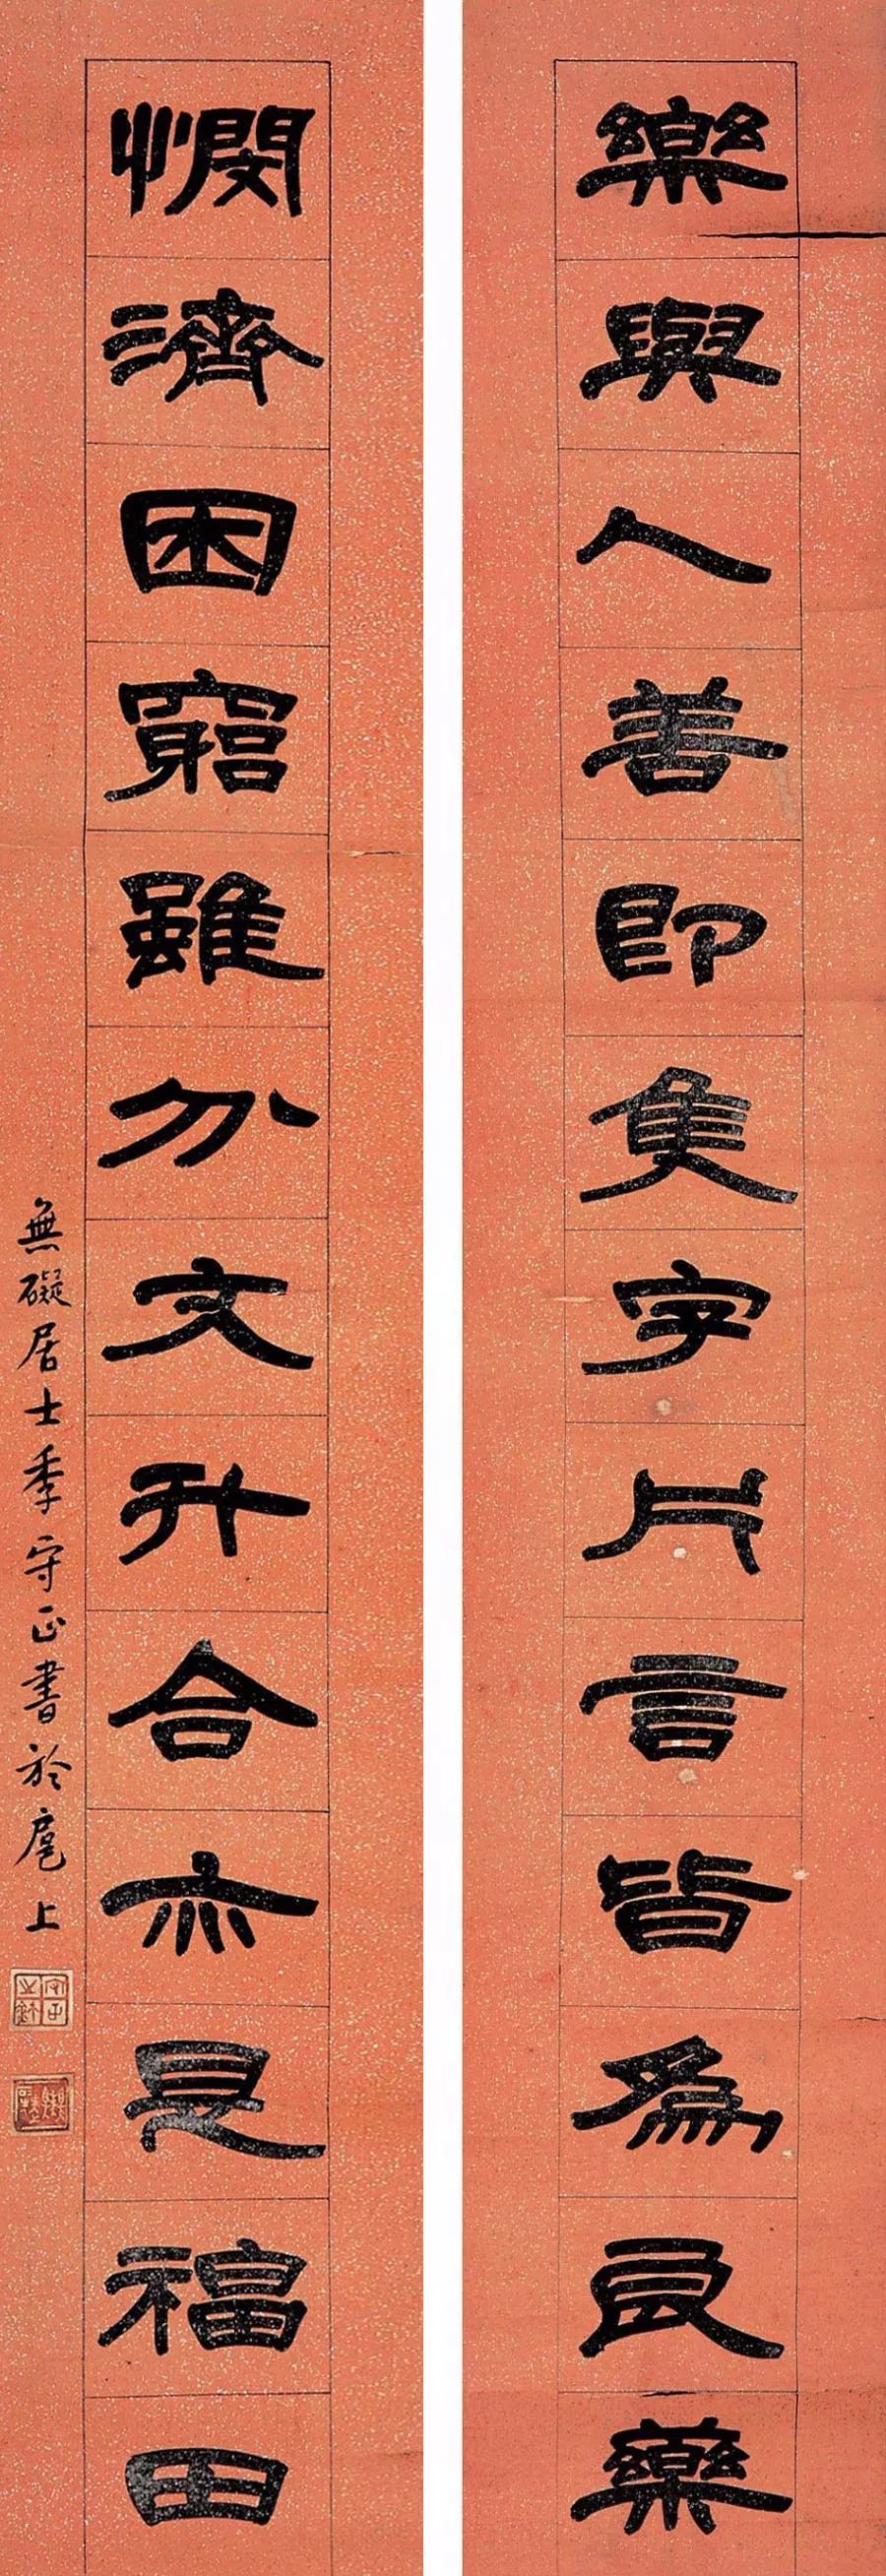 樂與人善即隻字片言皆為良藥
憫濟困竆雖分文升合亦是福田
無礙居士季守正書於扈上